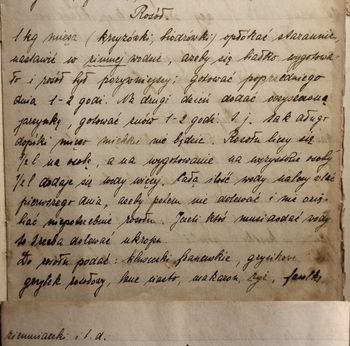 Rosół.
1 kg mięsa (krzyżówki, biodrówki) opłókać starannie
nastawić w zimnej wodzie, ażeby się białko wygotowa
ło i rosół był pożywniejszy: Gotować poprzedniego
dnia 1-2 godz. Na drugi dzień dodać oczyszczoną
jarzynkę, gotować znów 1-2 godz. t. j. tak długo
dopóki mięso miękkie nie będzie. Rosołu liczy się
¼ l na osobę, a na wygotowanie na wszystkie osoby
¼ l dodaje się wody więcej. Całą ilość wody należy wlać
pierwszego dnia, ażeby potem nie dolewać i nie
biać niepotrzebnie rosołu. Jeśli ktoś musi dodać wody
to trzeba dolewać ukropu.
Do rosołu podać: kluseczki francuskie, grysikowe
grzybek rosołowy, lane ciasto, makaron, ryż, fasolkę
ziemniaczki i t. d.